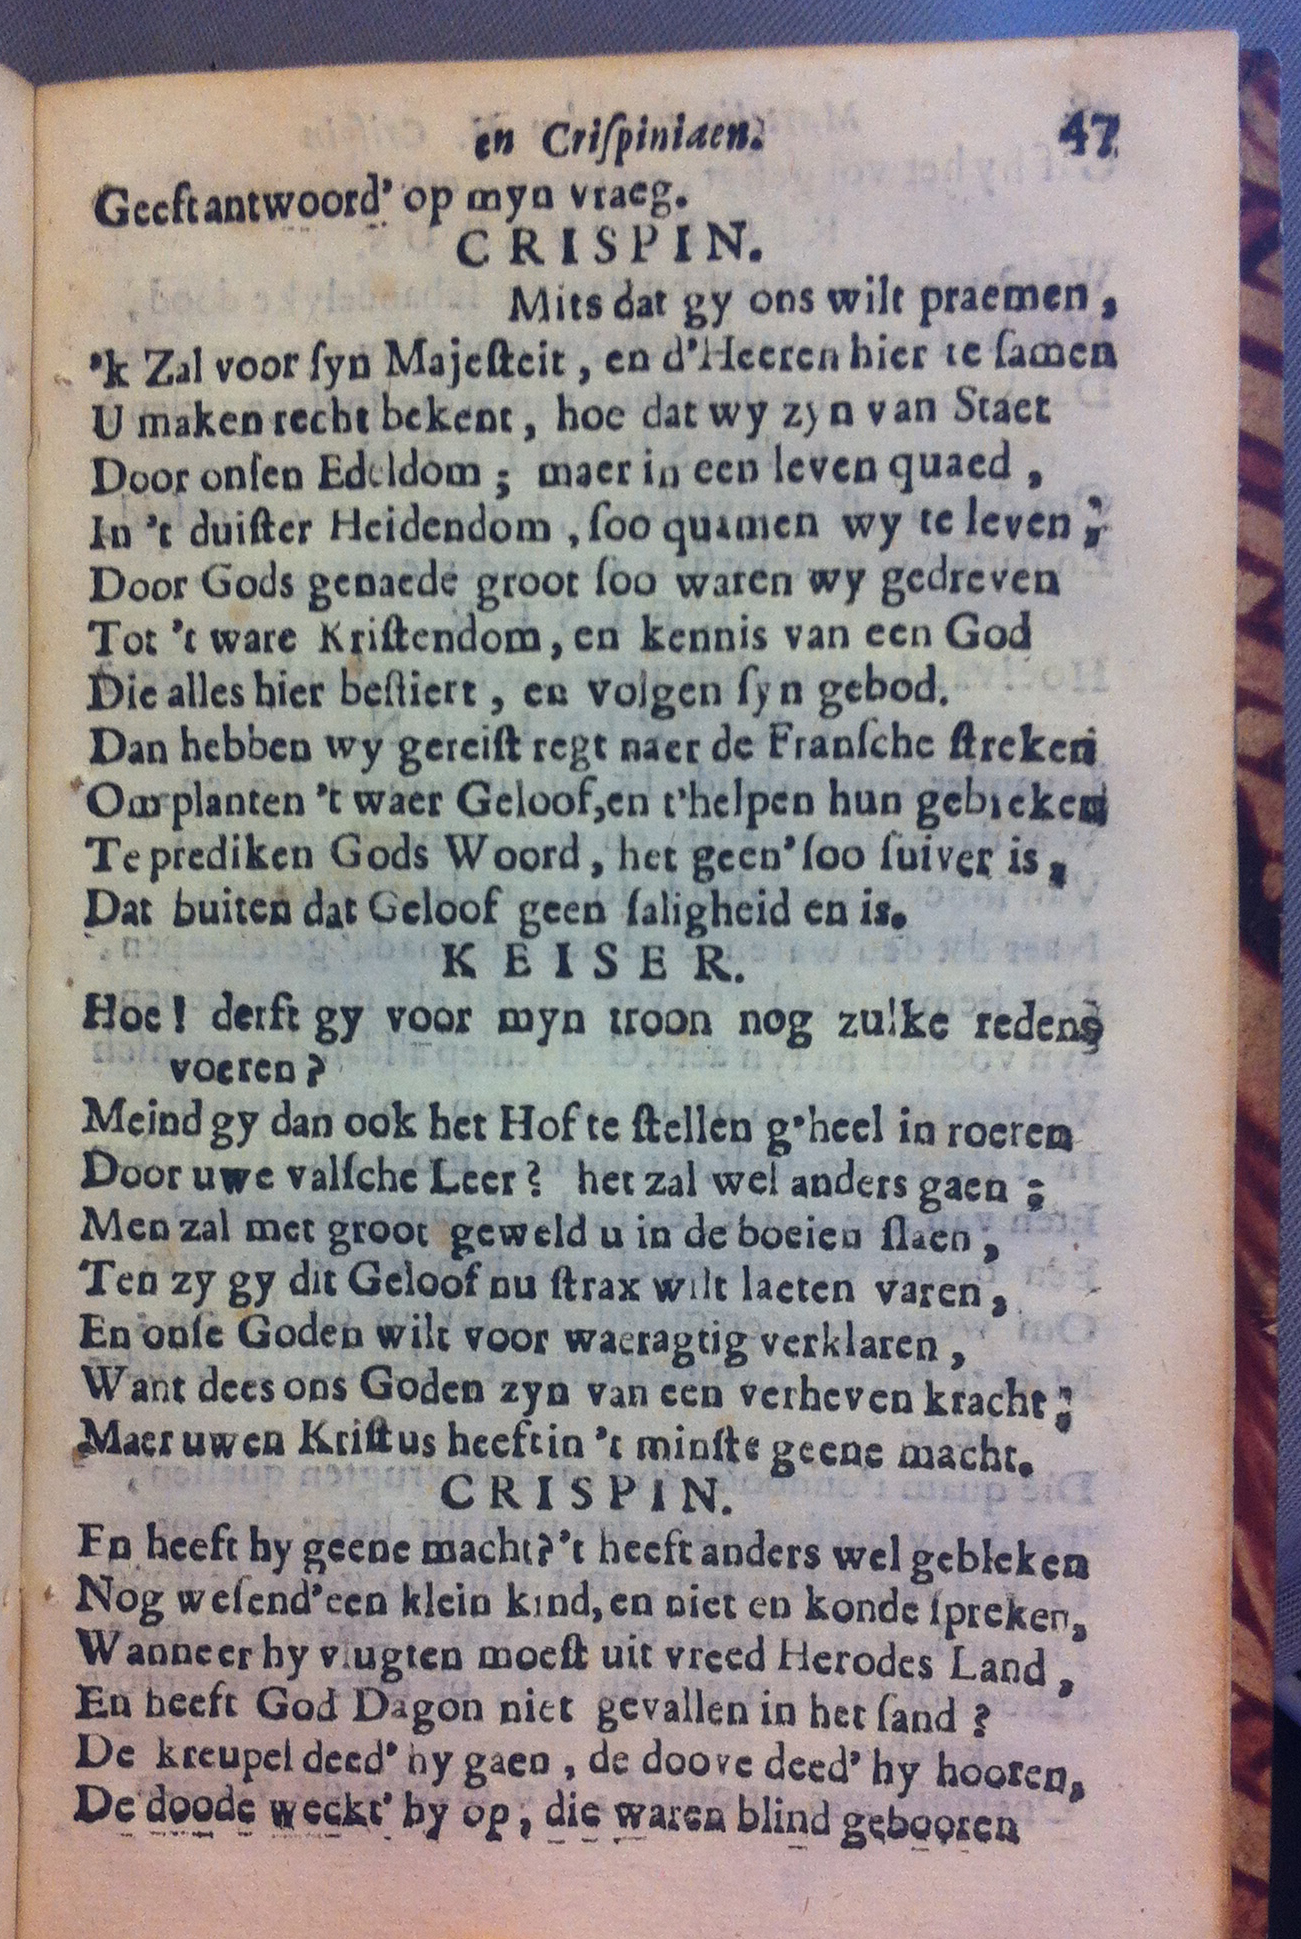 en Criſpiniaen. 47
Geeft antwoord' op myn vraeg.
CRISPIN.
Mits dat gy ons wilt praemen,
'k Zal voor ſyn Majeſteit, en d'Heeren hier te ſamen
U maken recht bekent, hoe dat wy zyn van Staet
Door onſen Edeldom; maer in een leven quaed,
In 't duiſter Heidendom, ſoo quamen wy te leven;
Door Gods genaede groot ſoo waren wy gedreven
Tot 't ware Kriſtendom, en kennis van een God
Die alles hier beſtiert, en volgen ſyn gebod.
Dan hebben wy gereiſt regt naer de Franſche ſtreken
Om planten 't waer Geloof, en t'helpen hun gebreken
Te prediken Gods Woord, het geen' ſoo ſuiver is,
Dat buiten dat Geloof geen ſaligheid en is.
KEISER.
Hoe! derft gy voor myn troon nog zulke redens
voeren?
Meind gy dan ook het Hof te ſtellen g'heel in roeren
Door uwe valſche Leer? het zal wel anders gaen;
Men zal met groot geweld u in de boeien ſlaen,
Ten zy gy dit Geloof nu ſtrax wilt laeten varen,
En onſe Goden wilt voor waeragtig verklaren,
Want dees ons Goden zyn van een verheven kracht;
Maer uwen Kriſtus heeft in 't minſte geene macht.
CRISPIN.
En heeft hy geene macht? 't heeft anders wel gebleken
Nog weſend' een klein kind, en niet en konde ſpreken,
Wanneer hy vlugten moeſt uit vreed Herodes Land,
En heeft God Dagon niet gevallen in het ſand?
De kreupel deed' hy gaen, de doove deed' hy hooren,
De doode weckt' hy op, die waren blind gebooren